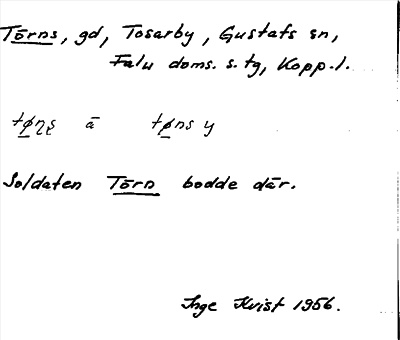 Törns, gd, Tosarby, Gustafs sn,
Falu doms. s. tg, Kopp. l.
tø̱ɳʂ ā tø̱ns y
Soldaten Törn bodde där.
Inge Kvist 1956.